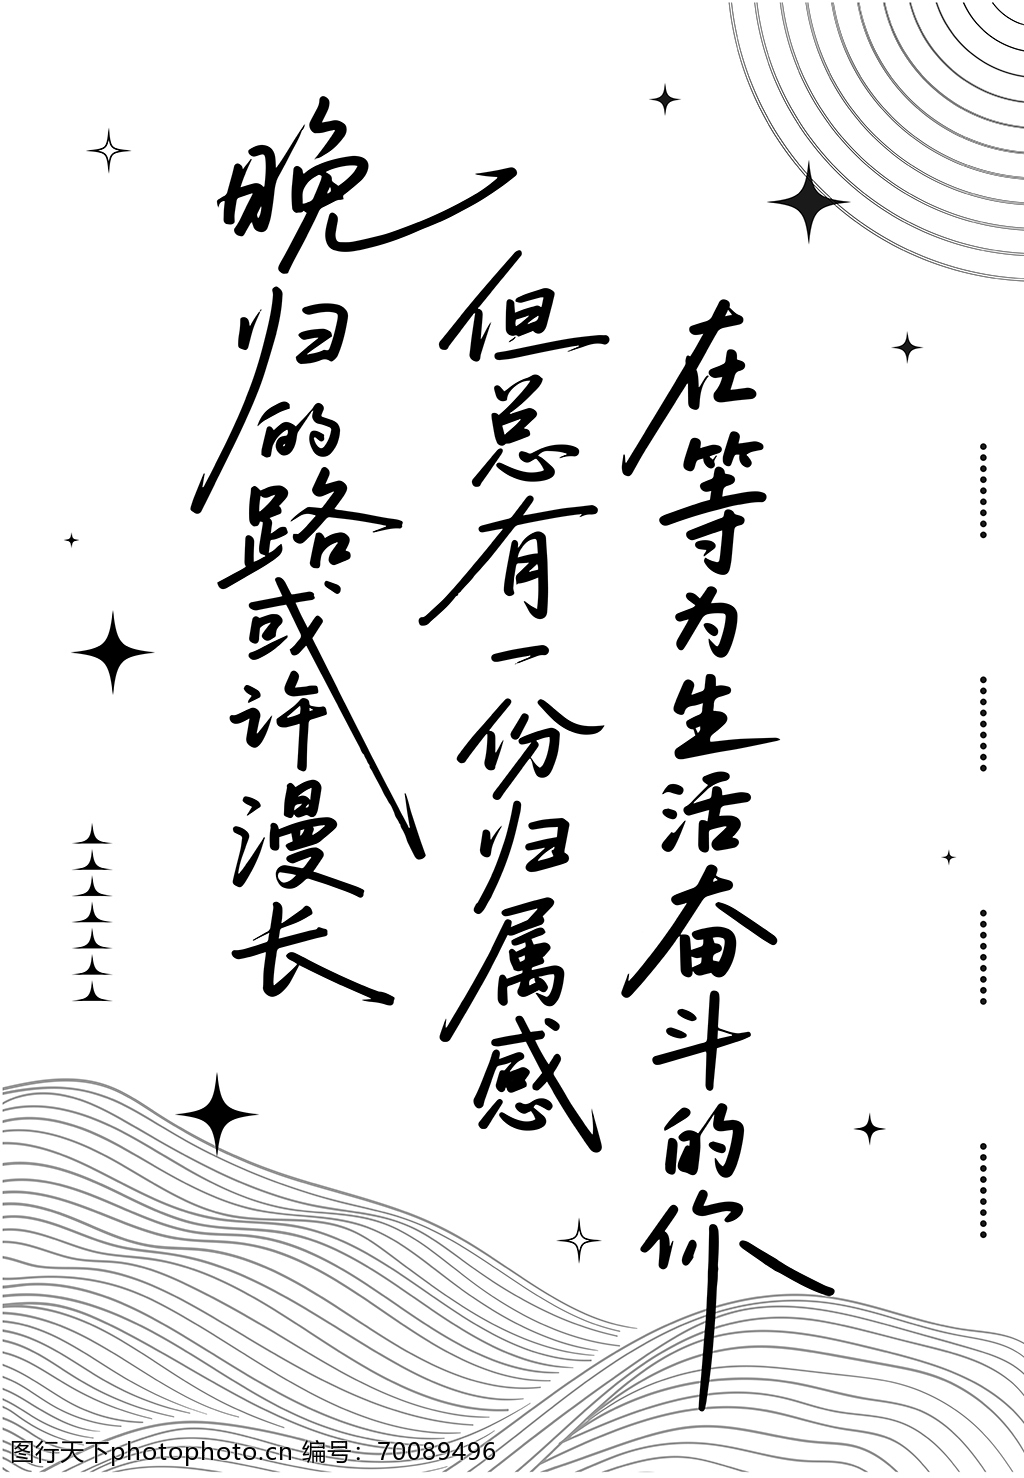 晚归的路或许漫长
但总有一份归属感
在等为生活奋斗的你
图行天下photophoto.cn 编号：70089496